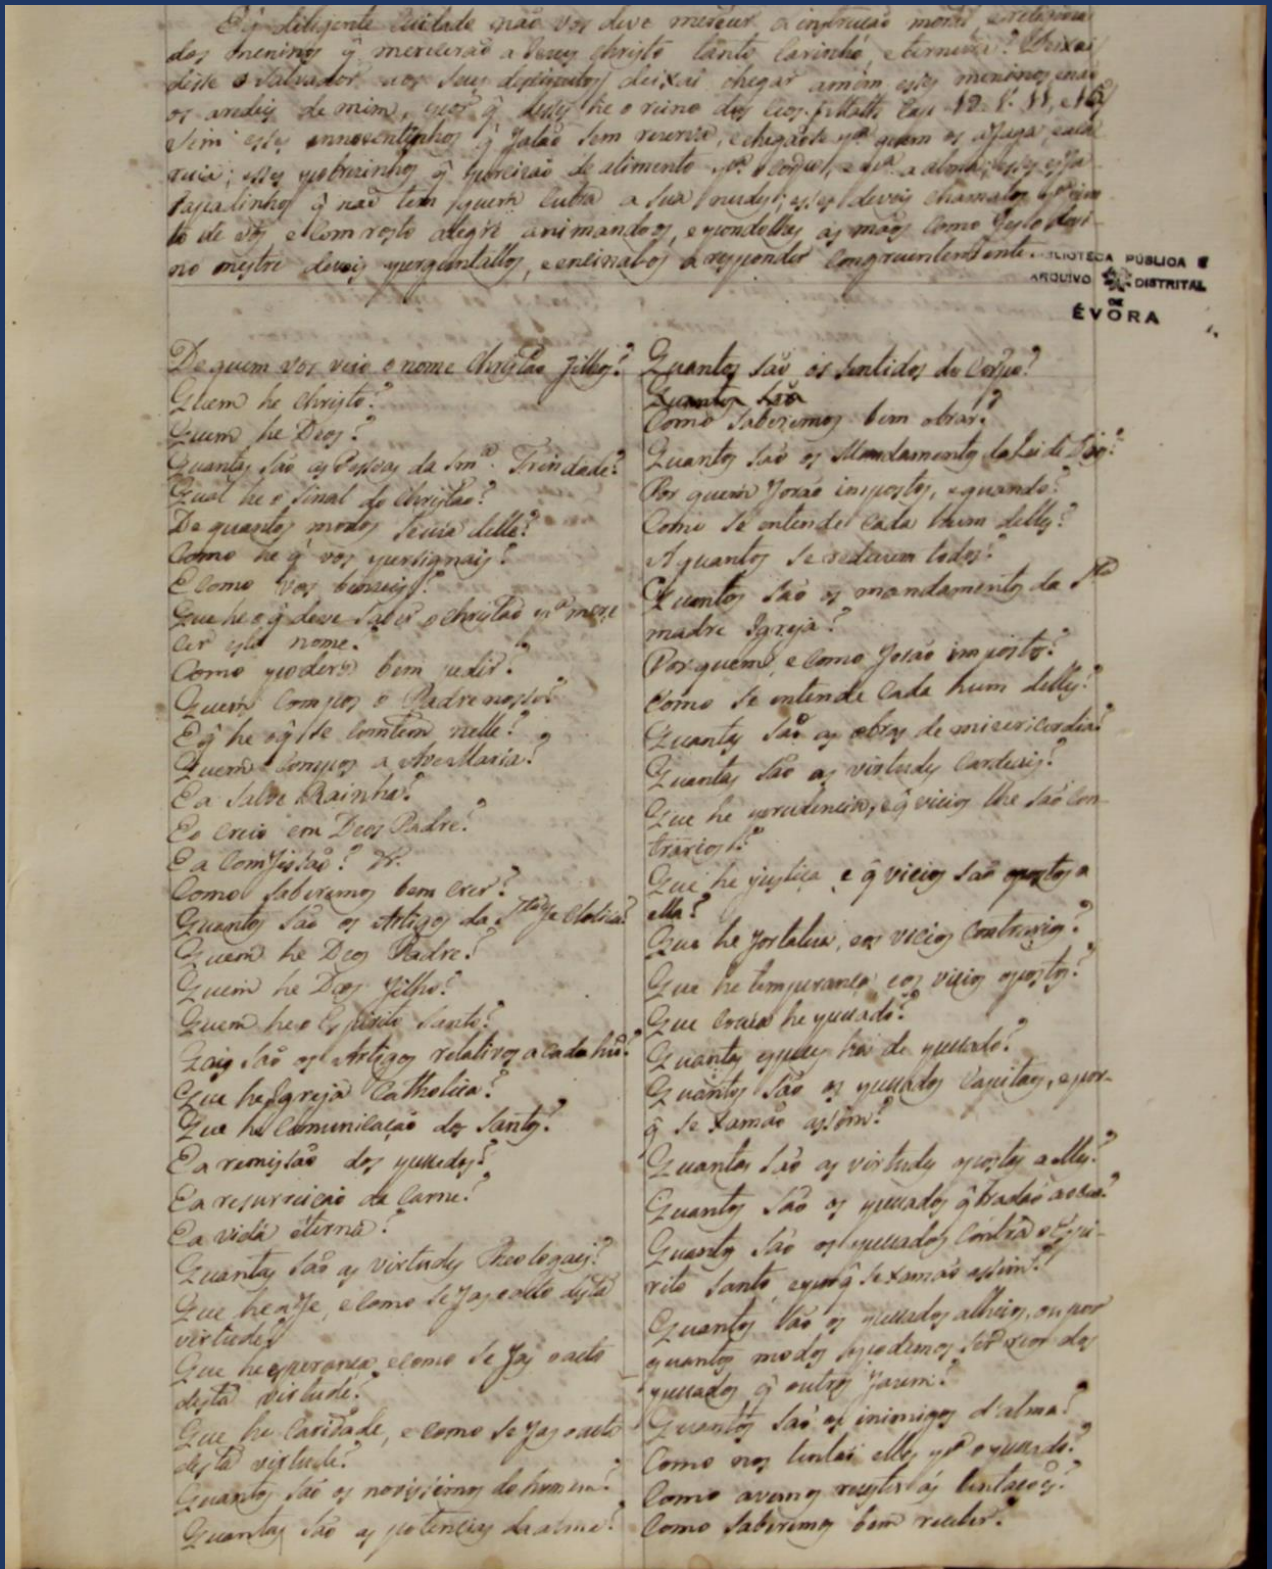 E q̃ diligente cuidado não vos deve merecer a instrucção moral e religiosa
dos meninos q̃ mereceraõ a Jesus Christo tanto carinho, e ternura? Deixai
disse o Salvador aos seus discipulos, deixai chegar a mim estes meninos, e não
os aredeis de mim, por q̃ delles he o reino dos Ceos. S. Math. Cap. 19. V.
Sim esses innocentinhos q̃ falaõ sem reserva, e chegaõse pᵃ quem os afaga, e
; esses pobrezinhos q̃ precizaõ de alimento pᵃ o corpo, e pᵃ a alma; esses
q̃ naõ tem quem cubra a sua nudez; esses deveis chamalos
to de vós e com rosto alegre animandoos, e pondolhes as mãos como
no mestre deveis perguntallos, e ensinalos a responder congruentemente.
BIBLIOTECA PÚBLICA E
ARQUIVO DISTRITAL
DE
ÉVORA
De quem vos veio o nome Christaõ filhos?
Quem he Christo?
Quem he Deos?
Quantas saõ as Pessoas da Smᵃ. Trindade?
Qual he o sinal do Christaõ?
De quantos modos se uza delle?
Como he q̃ vos persignais?
E como vos benzeis?
Que he o q̃ deve saber o christaõ pᵃ mere
cer este nome?
Como poderá bem pedir?
Quem compos o Padre nosso?
E q̃ he o q̃ se contem nelle?
Quem compos a Ave Maria?
E a Salve Rainha?
E o creio em Deos Padre?
E a Comfissaõ?
Como saberemos bem crer?
Quantos saõ os Artigos da Stᵃ fe Chatolica?
Quem he Deos Padre?
Quem he Deos filho?
Quem he o Espirito Santo?
Quais saõ os Artigos relativos a cada hũ?
Que he Igreja Catholica?
Que he Comunicaçaõ dos Santos?
E a remissaõ dos peccados?
E a resurreiçaõ da Carne?
E a vida eterna?
Quantas saõ as virtudes Theologais?
Que he a fe, e como se fas o acto desta
virtude?
Que he esperança e como se fas o acto
desta virtude?
Que he Caridade, e como se fas o acto
desta virtude?
Quantos saõ os novissimos do homem?
Quantas saõ as potencias da alma?
Quantos saõ os sentidos do Corpo?
Quantos saõ
Como saberemos bem obrar?
Quantos saõ os Mandamentos da Lei de Dᵒˢ?
Por quem foraõ impostos, e quando?
Como se entende cada hum delles?
A quantos se reduzem todos?
Quantos saõ os mandamentos da Stᵃ
madre Igreja?
Por quem, e como foraõ impostos?
Como se entende cada hum delles?
Quantas saõ as obras de misericordia?
Quantas saõ as virtudes Cardeais?
Que he prudencia, e q̃ vicios lhe saõ con-
trarios?
Que he justiça e q̃ vicios saõ opostos a
ella?
Que he fortaleza, e os vicios contrarios?
Que he temperança e os vicios opostos?
Que couza he peccado?
Quantas especies ha de peccado?
Quantos saõ os peccados Capitaes, e por-
q̃ se xamaõ assim?
Quantas saõ as virtudes opostas a elles?
Quantos saõ os peccados q̃ bradaõ ao ceo?
Quantos saõ os peccados contra o Espi-
rito Santo, e por q̃ se xamaõ assim?
Quantos saõ os peccados alheios, ou por
quantos modos podemos ser reor dos
peccados q̃ outros fazem?
Quantos saõ os inimigos d'alma?
Como nos tentaõ elles pᵃ o peccado?
Como avemos resistir ás tentaçoẽs?
Como saberemos bem receber?